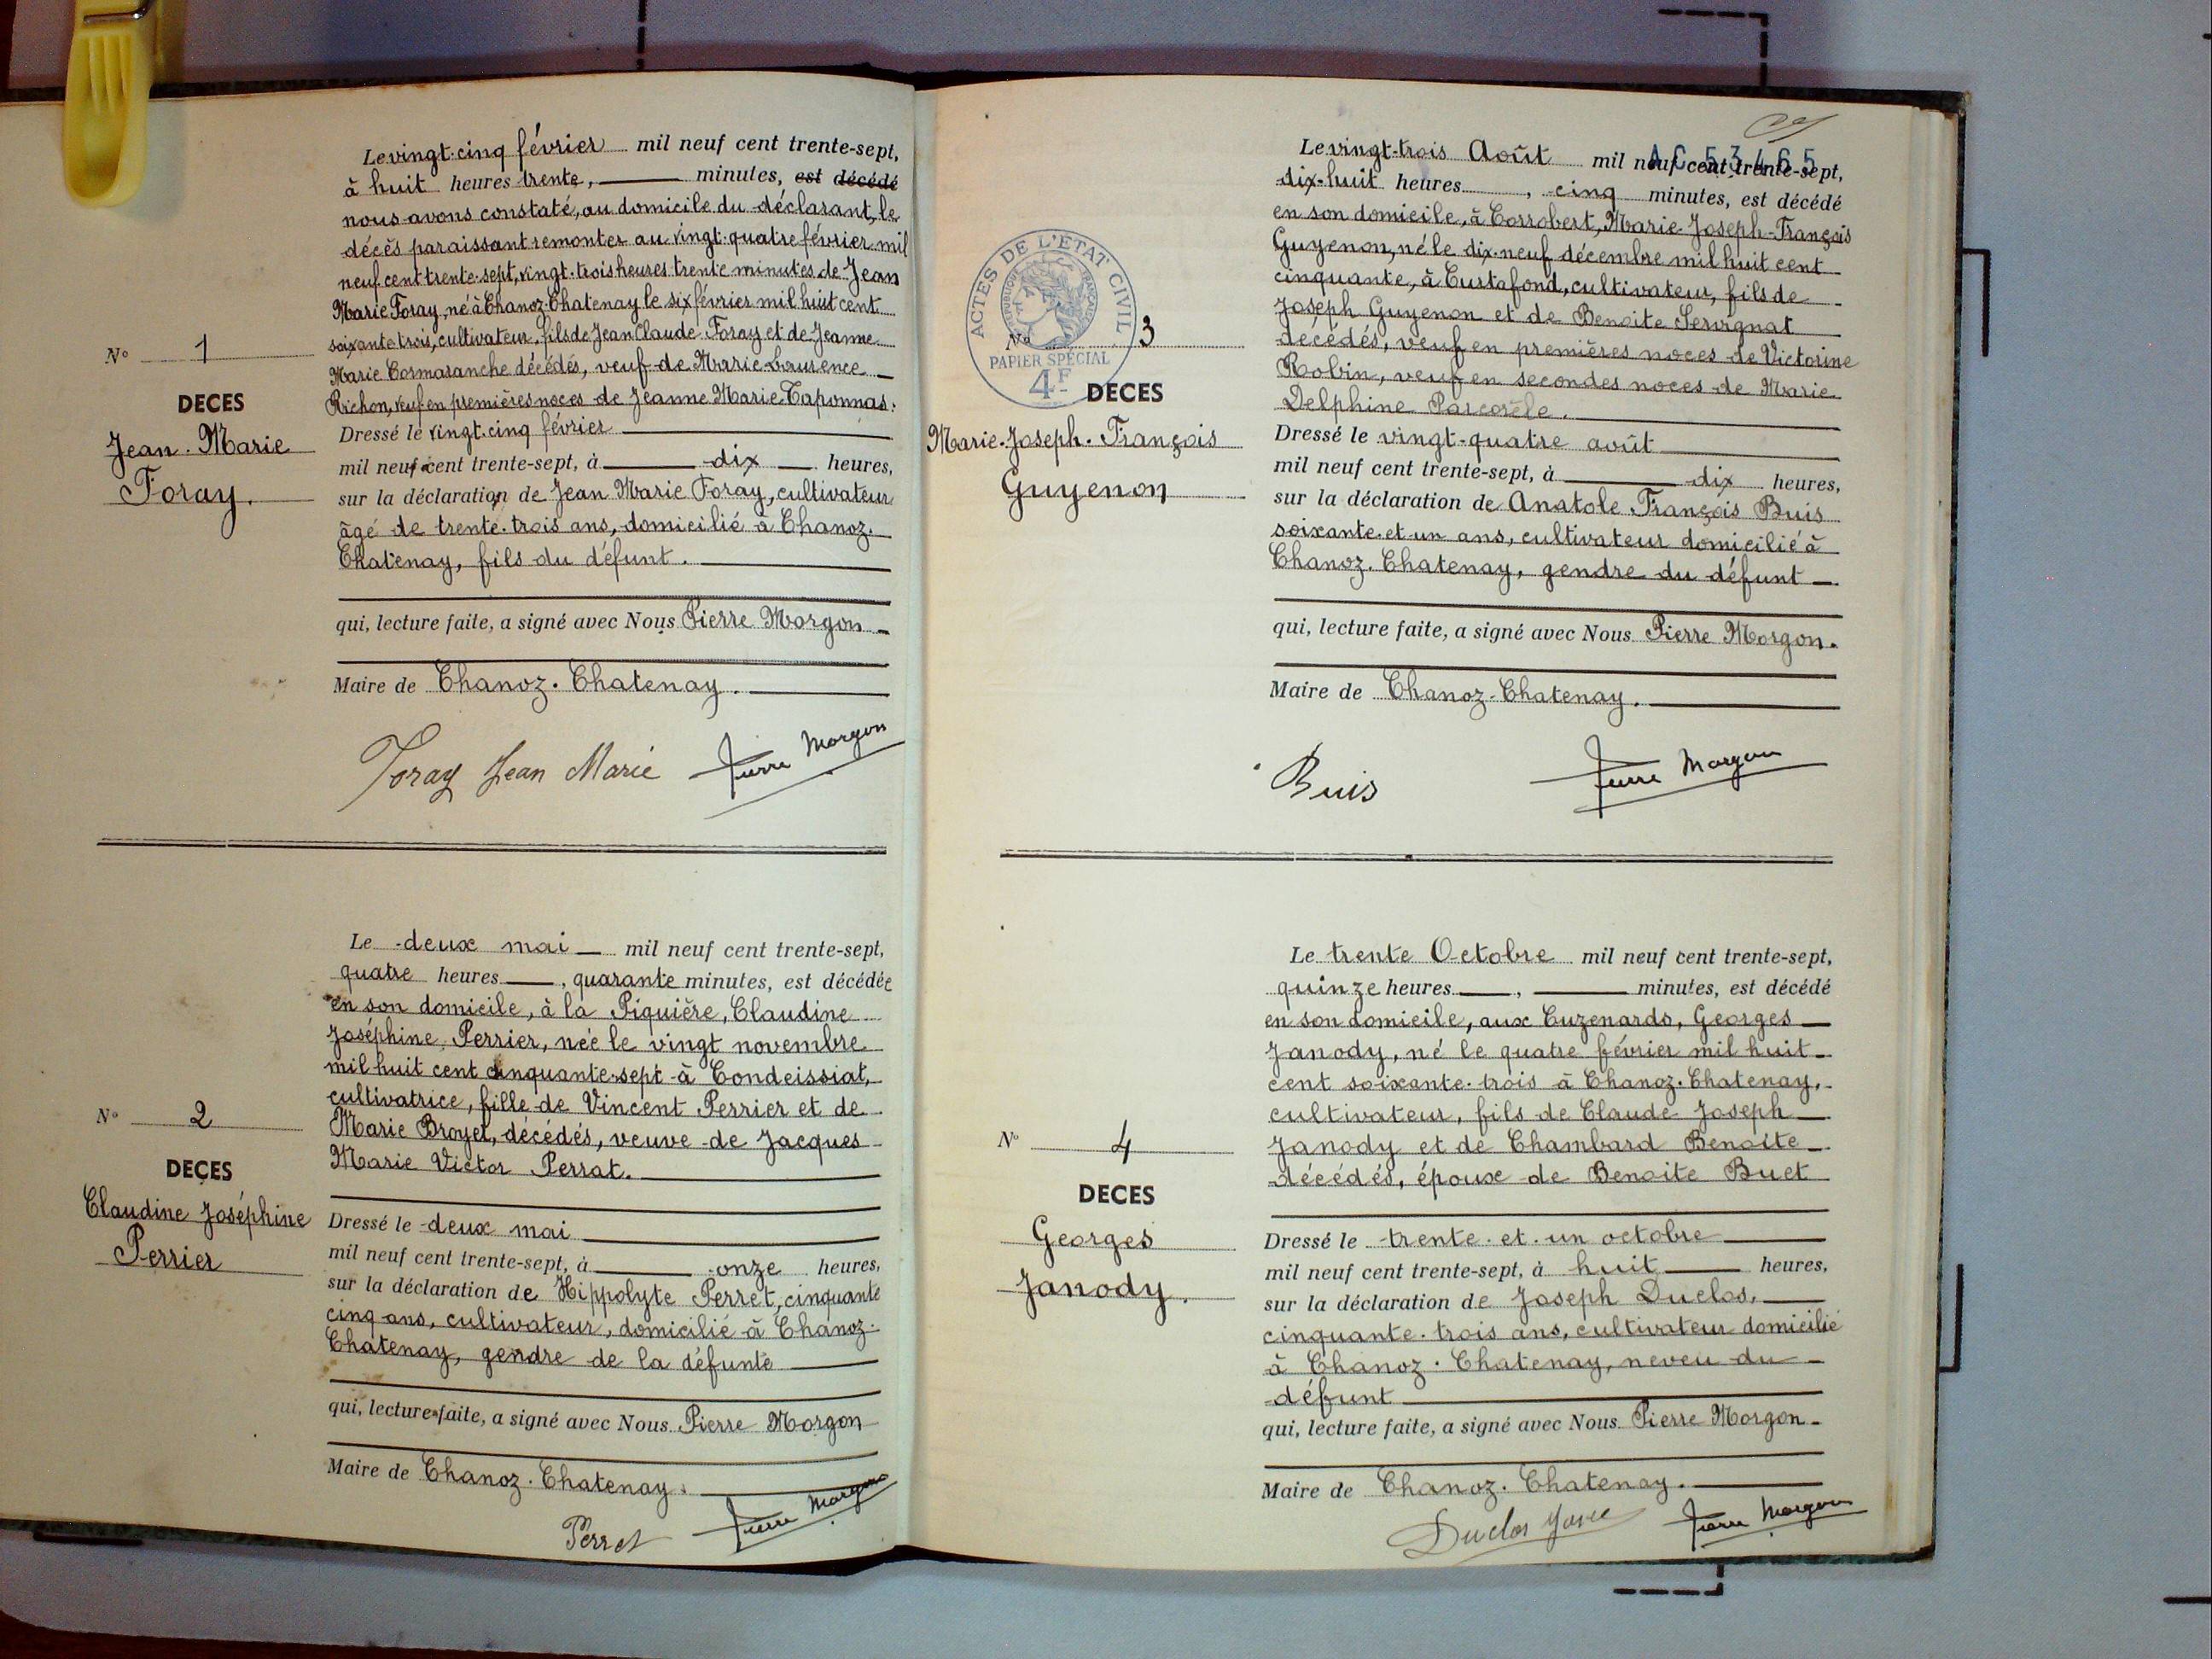 Le vingt-cinq février mil neuf cent trente-sept,
à huit heures trente, minutes, est décédé
nous avons constaté, au domicile du déclarant, le
décès paraissant remonter au vingt-quatre février mil
neuf cent trente-sept, vingt-trois heures trente minutes de Jean
Marie Foray, né à Chanoz-Chatenay le six février mil huit cent
soixante trois, cultivateur, fils de Jean Claude Foray et de Jeanne
Marie Cormaranche décédés, veuf de Marie Laurence
Richon, veuf en premières noces de Jeanne Marie Taponnas.
N° 1
DECES
Jean-Marie
Foray.
Dressé le vingt-cinq février
mil neuf cent trente-sept, à dix heures,
sur la déclaration de Jean Marie Foray, cultivateur
âgé de trente-trois ans, domicilié à Chanoz-
Chatenay, fils du défunt.
qui, lecture faite, a signé avec Nous Pierre Morgon
Maire de Chanoz-Chatenay.
Foray Jean Marie Pierre Morgon
Le deux mai mil neuf cent trente-sept,
quatre heures, quarante minutes, est décédée
en son domicile, à la Piquière, Claudine
Joséphine Perrier, née le vingt novembre
mil huit cent cinquante-sept à Condeissiat,
cultivatrice, fille de Vincent Perrier et de
Marie Broyer, décédés, veuve de Jacques
Marie Victor Perrat.
N° 2
DECES
Claudine Joséphine
Perrier
Dressé le deux mai
mil neuf cent trente-sept, à onze heures,
sur la déclaration de Hippolyte Perret, cinquante
cinq ans, cultivateur, domicilié à Chanoz-
Chatenay, gendre de la défunte
qui, lecture faite, a signé avec Nous Pierre Morgon
Maire de Chanoz-Chatenay.
Perret Pierre Morgon
AC 53465
Le vingt-trois Août mil neuf cent trente-sept,
dix-huit heures, cinq minutes, est décédé
en son domicile, à Corrobert, Marie Joseph-François
Guyenon, né le dix-neuf décembre mil huit cent
cinquante, à Curtafond, cultivateur, fils de
Joseph Guyenon et de Benoite Servignat
décédés, veuf en premières noces de Victorine
Robin, veuf en secondes noces de Marie
Delphine
ACTES DE L'ÉTAT CIVIL
RÉPUBLIQUE FRANÇAISE
PAPIER SPÉCIAL
4F
N° 3
DECES
Marie-Joseph-François
Guyenon
Dressé le vingt-quatre août
mil neuf cent trente-sept, à dix heures,
sur la déclaration de Anatole François Buis
soixante-et-un ans, cultivateur domicilié à
Chanoz-Chatenay, gendre du défunt
qui, lecture faite, a signé avec Nous Pierre Morgon.
Maire de Chanoz-Chatenay.
Buis Pierre Morgon
Le trente Octobre mil neuf cent trente-sept,
quinze heures, minutes, est décédé
en son domicile, aux Cuzenards, Georges
Janody, né le quatre février mil huit
cent soixante-trois à Chanoz-Chatenay,
cultivateur, fils de Claude Joseph
Janody et de Chambard Benoite
décédés, époux de Benoite Buet
N° 4
DECES
Georges
Janody.
Dressé le trente-et-un octobre
mil neuf cent trente-sept, à huit heures,
sur la déclaration de Joseph Duclos,
cinquante-trois ans, cultivateur domicilié
à Chanoz-Chatenay, neveu du
défunt
qui, lecture faite, a signé avec Nous Pierre Morgon
Maire de Chanoz-Chatenay.
Duclos Pierre Morgon